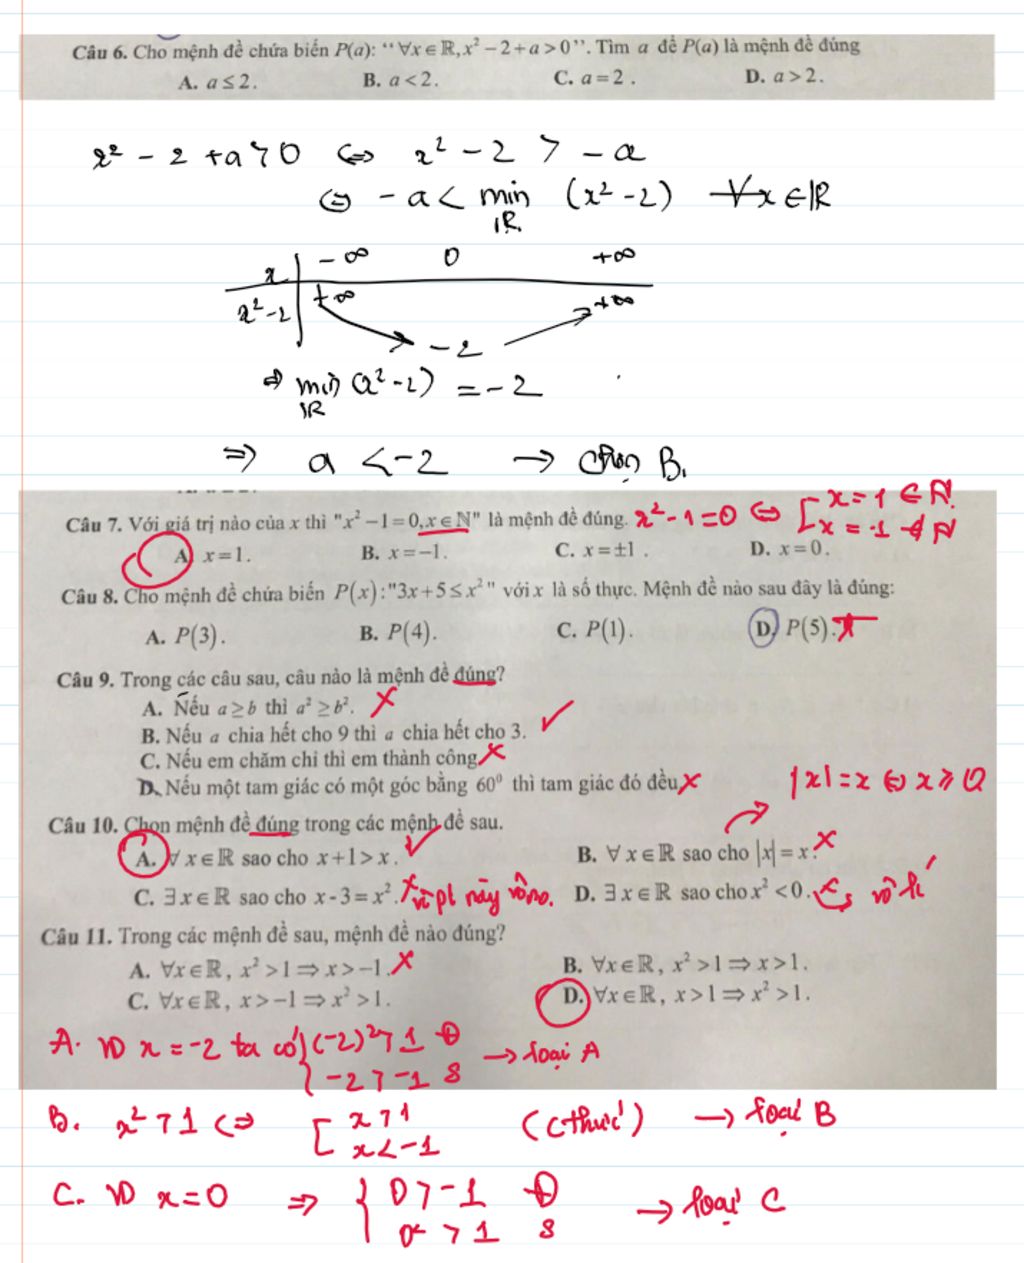 Câu 6. Cho mệnh đề chứa biến P(a): "∀x∈ℝ, x² − 2 + a > 0". Tìm a để P(a) là mệnh đề đúng
A. a ≤ 2. B. a < 2. C. a = 2. D. a > 2.
x² − 2 + a > 0 ⇔ x² − 2 > − a
⇔ − a < min (x² − 2) ∀x ∈ ℝ
ℝ
x −∞ 0 +∞
x² − 2 +∞ −2 +∞
⇒ min (x² − 2) = − 2
ℝ
⇒ a < −2 → chọn B.
Câu 7. Với giá trị nào của x thì "x² − 1 = 0, x ∈ ℕ" là mệnh đề đúng. x² − 1 = 0 ⇔ [ x = 1 ∈ ℕ
x = -1 ∉ ℕ
A. x = 1. B. x = −1. C. x = ±1. D. x = 0.
Câu 8. Cho mệnh đề chứa biến P(x): "3x + 5 ≤ x²" với x là số thực. Mệnh đề nào sau đây là đúng:
A. P(3). B. P(4). C. P(1). D. P(5).
Câu 9. Trong các câu sau, câu nào là mệnh đề đúng?
A. Nếu a ≥ b thì a² ≥ b².
B. Nếu a chia hết cho 9 thì a chia hết cho 3.
C. Nếu em chăm chỉ thì em thành công
D. Nếu một tam giác có một góc bằng 60⁰ thì tam giác đó đều
|x| = x ⇔ x ≥ 0
Câu 10. Chọn mệnh đề đúng trong các mệnh đề sau.
A. ∀x∈ℝ sao cho x + 1 > x. B. ∀x∈ℝ sao cho |x| = x.
C. ∃x∈ℝ sao cho x - 3 = x². vì pt này vô no. D. ∃x∈ℝ sao cho x² < 0. vô lí
Câu 11. Trong các mệnh đề sau, mệnh đề nào đúng?
A. ∀x∈ℝ, x² > 1 ⇒ x > −1. B. ∀x∈ℝ, x² > 1 ⇒ x > 1.
C. ∀x∈ℝ, x > −1 ⇒ x² > 1. D. ∀x∈ℝ, x > 1 ⇒ x² > 1.
A. VD x = −2 ta có { (−2)² > 1 Đ
−2 > −1 S → loại A
B. x² > 1 ⇔ [ x > 1
x < −1 (cthức) → loại B
C. VD x = 0 ⇒ { 0 > −1 Đ
0² > 1 S → loại C